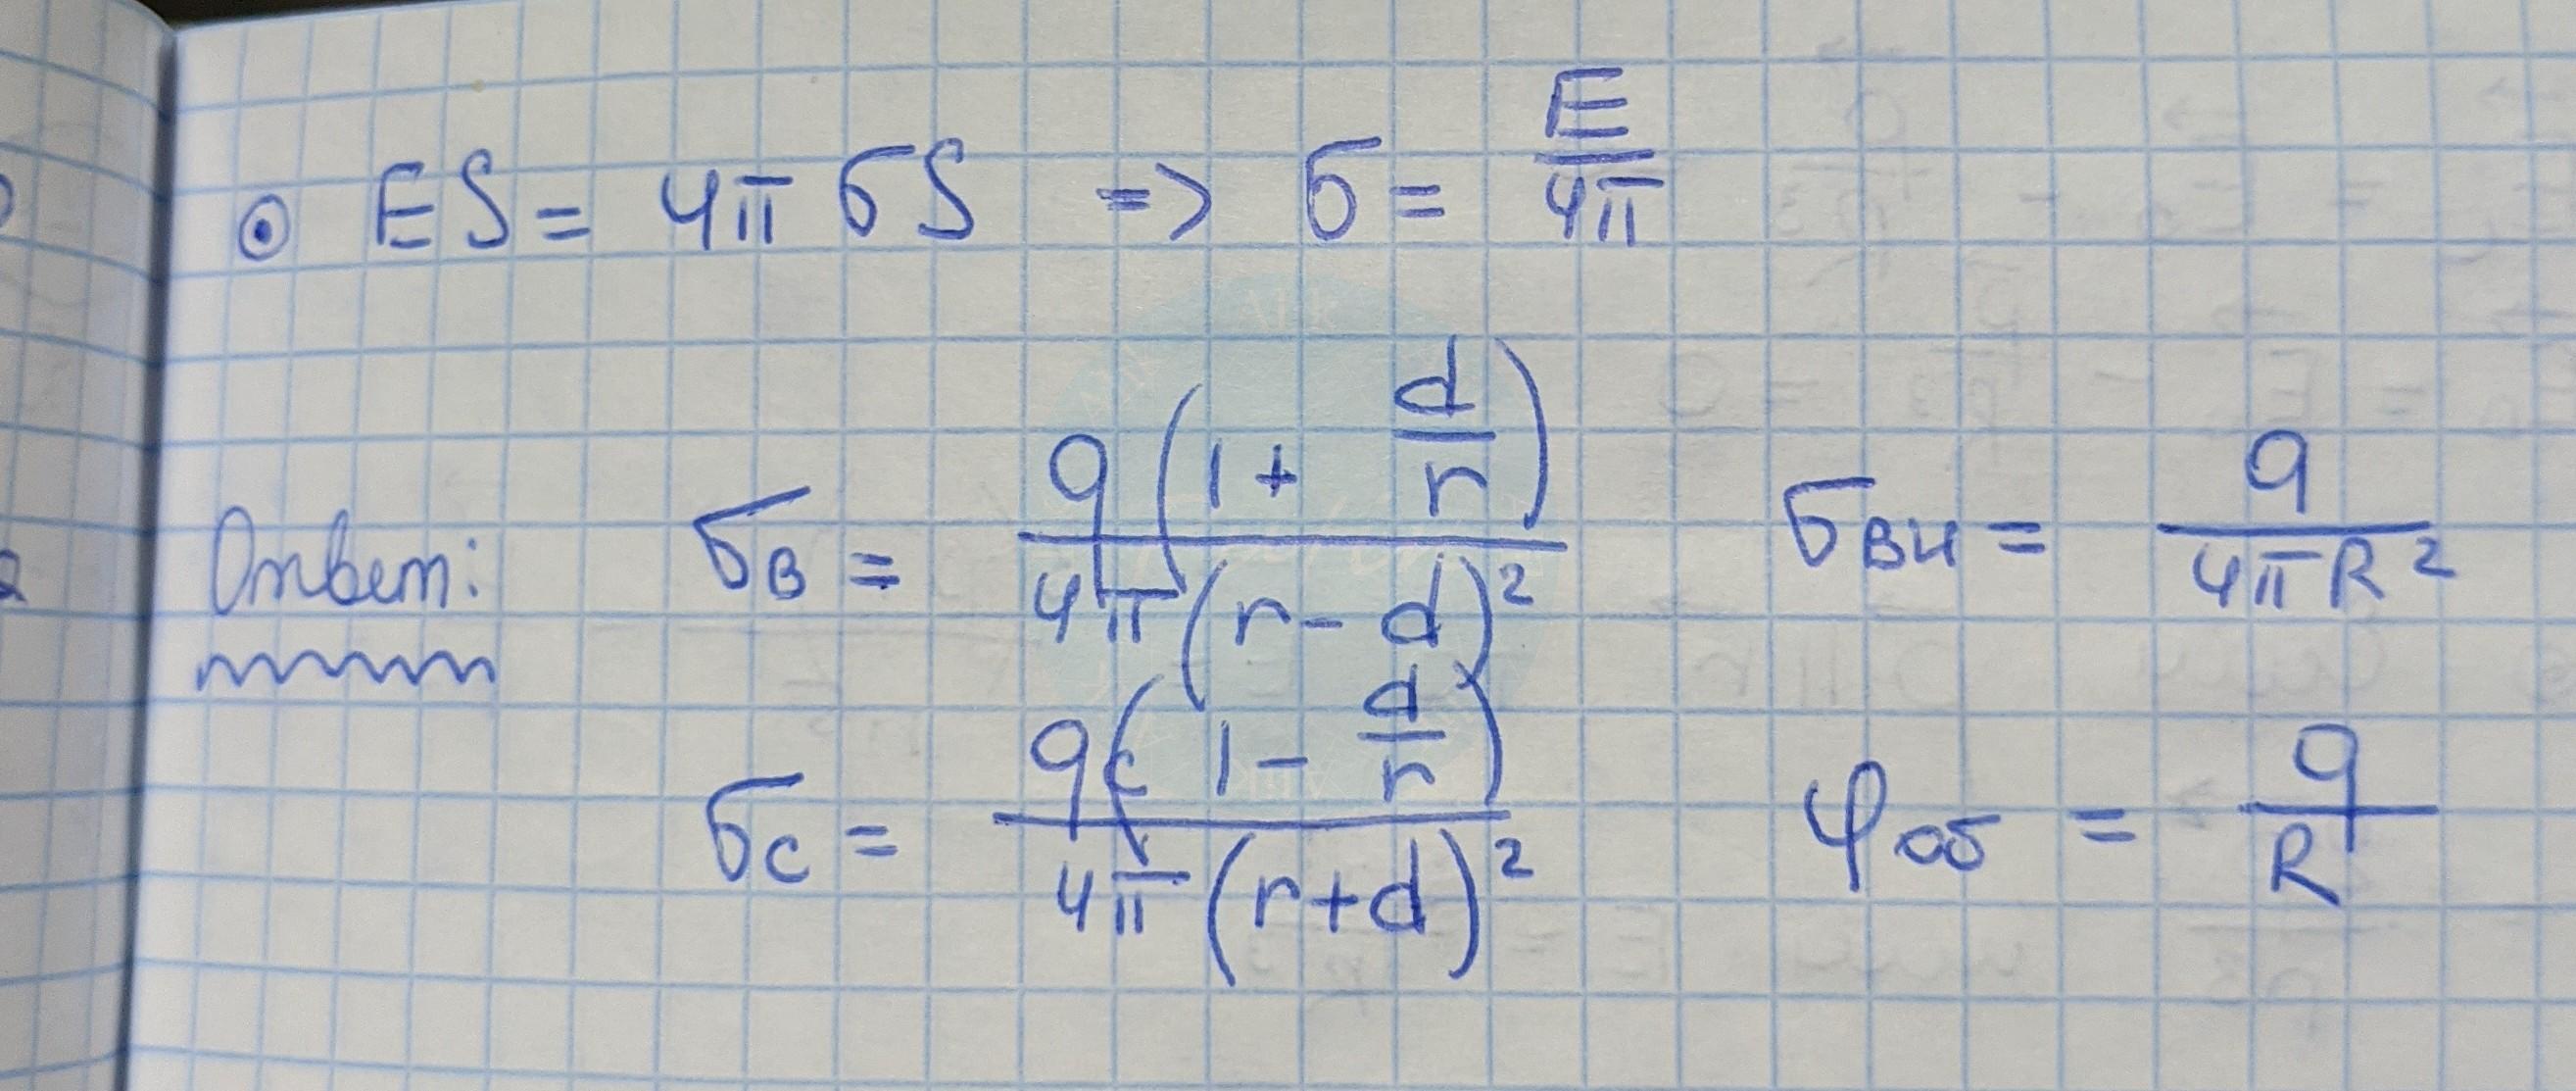 ⊙ ES = 4π σS => σ = E/4π
Ответ: σв = q(1 + d/r) / 4π(r - d)² σвн = q / 4πR²
σс = q(1 - d/r) / 4π(r+d)² φоб = q/R